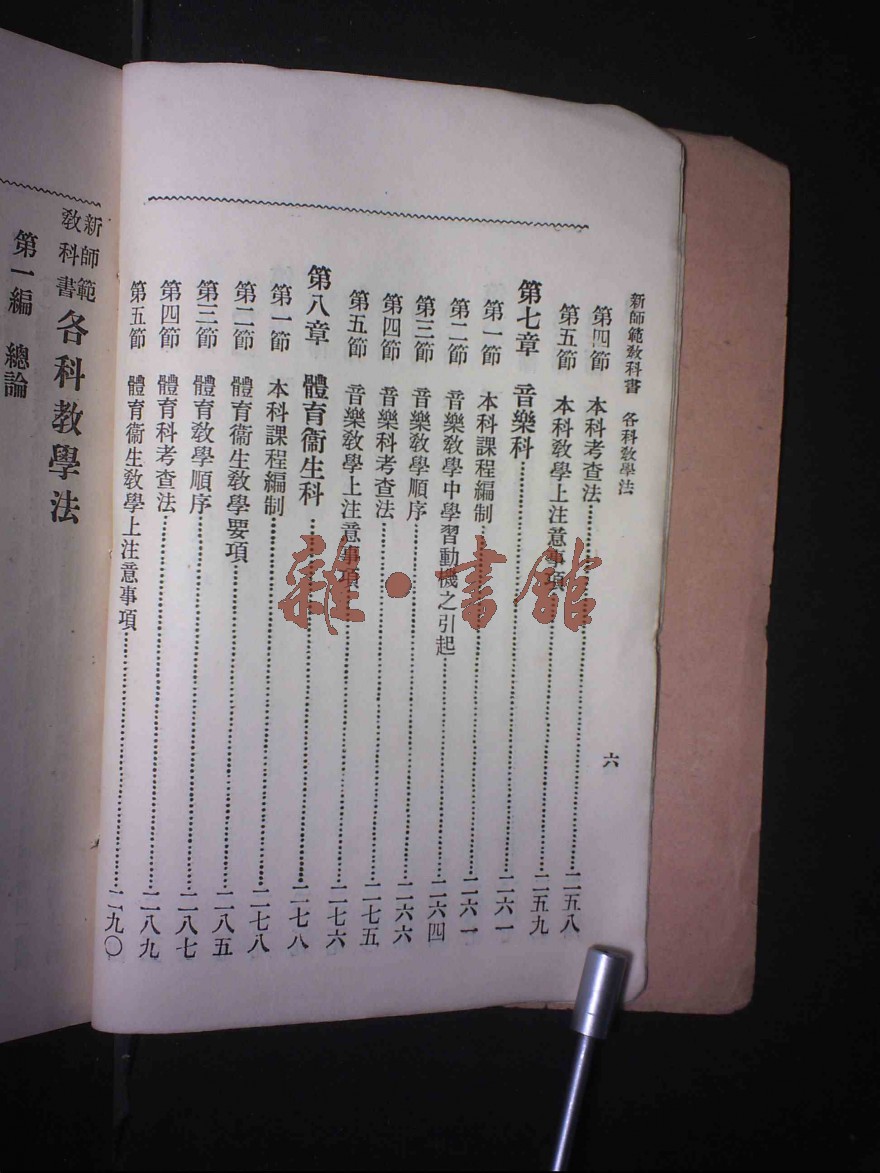 新師範教科書　各科教學法
六
第四節　本科考查法……二五八
第五節　本科教學上注意事項……二五九
第七章　音樂科……二六一
第一節　本科課程編制……二六一
第二節　音樂教學中學習動機之引起……二六四
第三節　音樂教學順序……二六六
第四節　音樂科考查法……二七五
第五節　音樂教學上注意事項……二七六
第八章　體育衞生科……二七八
第一節　本科課程編制……二七八
第二節　體育衞生教學要項……二八五
第三節　體育教學順序……二八七
第四節　體育科考查法……二八九
第五節　體育衞生教學上注意事項……二九〇
新師範
教科書
各科教學法
第一編　總論
雜·書館